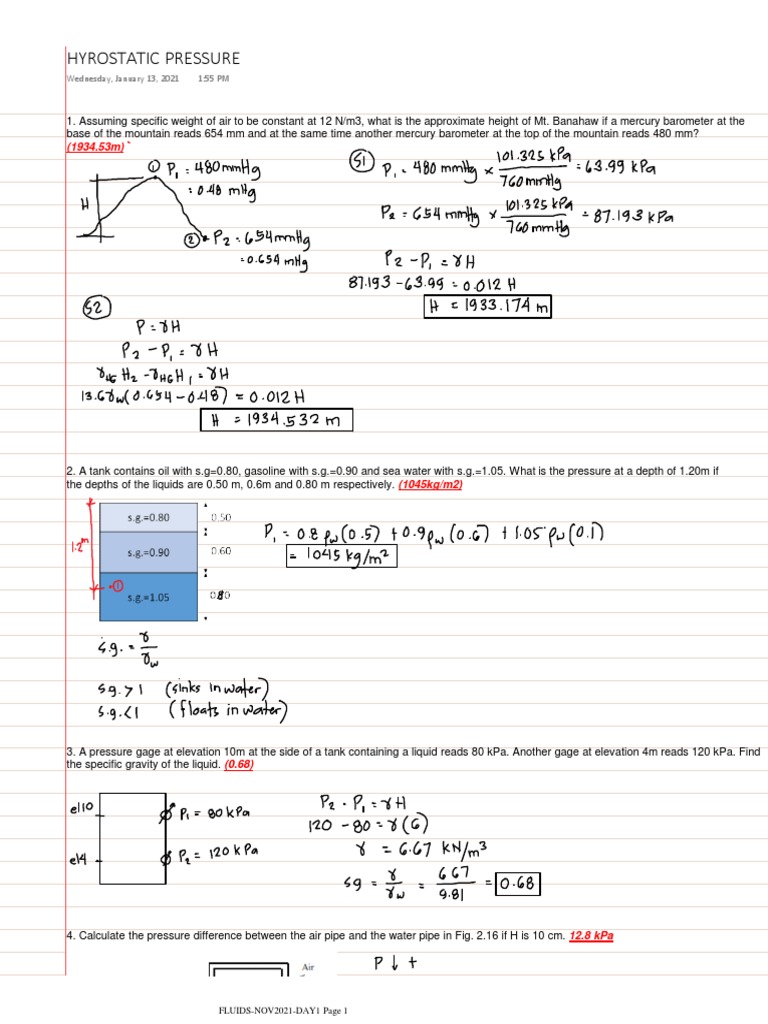 HYROSTATIC PRESSURE
Wednesday, January 13, 2021 1:55 PM
1. Assuming specific weight of air to be constant at 12 N/m3, what is the approximate height of Mt. Banahaw if a mercury barometer at the
base of the mountain reads 654 mm and at the same time another mercury barometer at the top of the mountain reads 480 mm?
(1934.53m)
① P₁ = 480 mmHg
= 0.48 mHg
H
② P₂ = 654 mmHg
= 0.654 mHg
S1
P₁ = 480 mmHg × 101.325 kPa / 760 mmHg = 63.99 kPa
P₂ = 654 mmHg × 101.325 kPa / 760 mmHg = 87.193 kPa
P₂ - P₁ = γH
87.193 - 63.99 = 0.012 H
H = 1933.174 m
S2
P = γH
P₂ - P₁ = γH
γHG H₂ - γHG H₁ = γH
13.6γw(0.654 - 0.48) = 0.012 H
H = 1934.532 m
2. A tank contains oil with s.g=0.80, gasoline with s.g.=0.90 and sea water with s.g.=1.05. What is the pressure at a depth of 1.20m if
the depths of the liquids are 0.50 m, 0.6m and 0.80 m respectively. (1045kg/m2)
1.2m
s.g.=0.80 0.50
s.g.=0.90 0.60
①
s.g.=1.05 0.80
P₁ = 0.8 ρw(0.5) + 0.9ρw(0.6) + 1.05 ρw(0.1)
= 1045 kg/m²
s.g. = γ / γw
sg. > 1 (sinks in water)
s.g. < 1 (floats in water)
3. A pressure gage at elevation 10m at the side of a tank containing a liquid reads 80 kPa. Another gage at elevation 4m reads 120 kPa. Find
the specific gravity of the liquid. (0.68)
el10
P₁ = 80 kPa
el4
P₂ = 120 kPa
P₂ - P₁ = γH
120 - 80 = γ(6)
γ = 6.67 kN/m³
sg = γ / γw = 6.67 / 9.81 = 0.68
4. Calculate the pressure difference between the air pipe and the water pipe in Fig. 2.16 if H is 10 cm. 12.8 kPa
Air
P ↓ +
FLUIDS-NOV2021-DAY1 Page 1